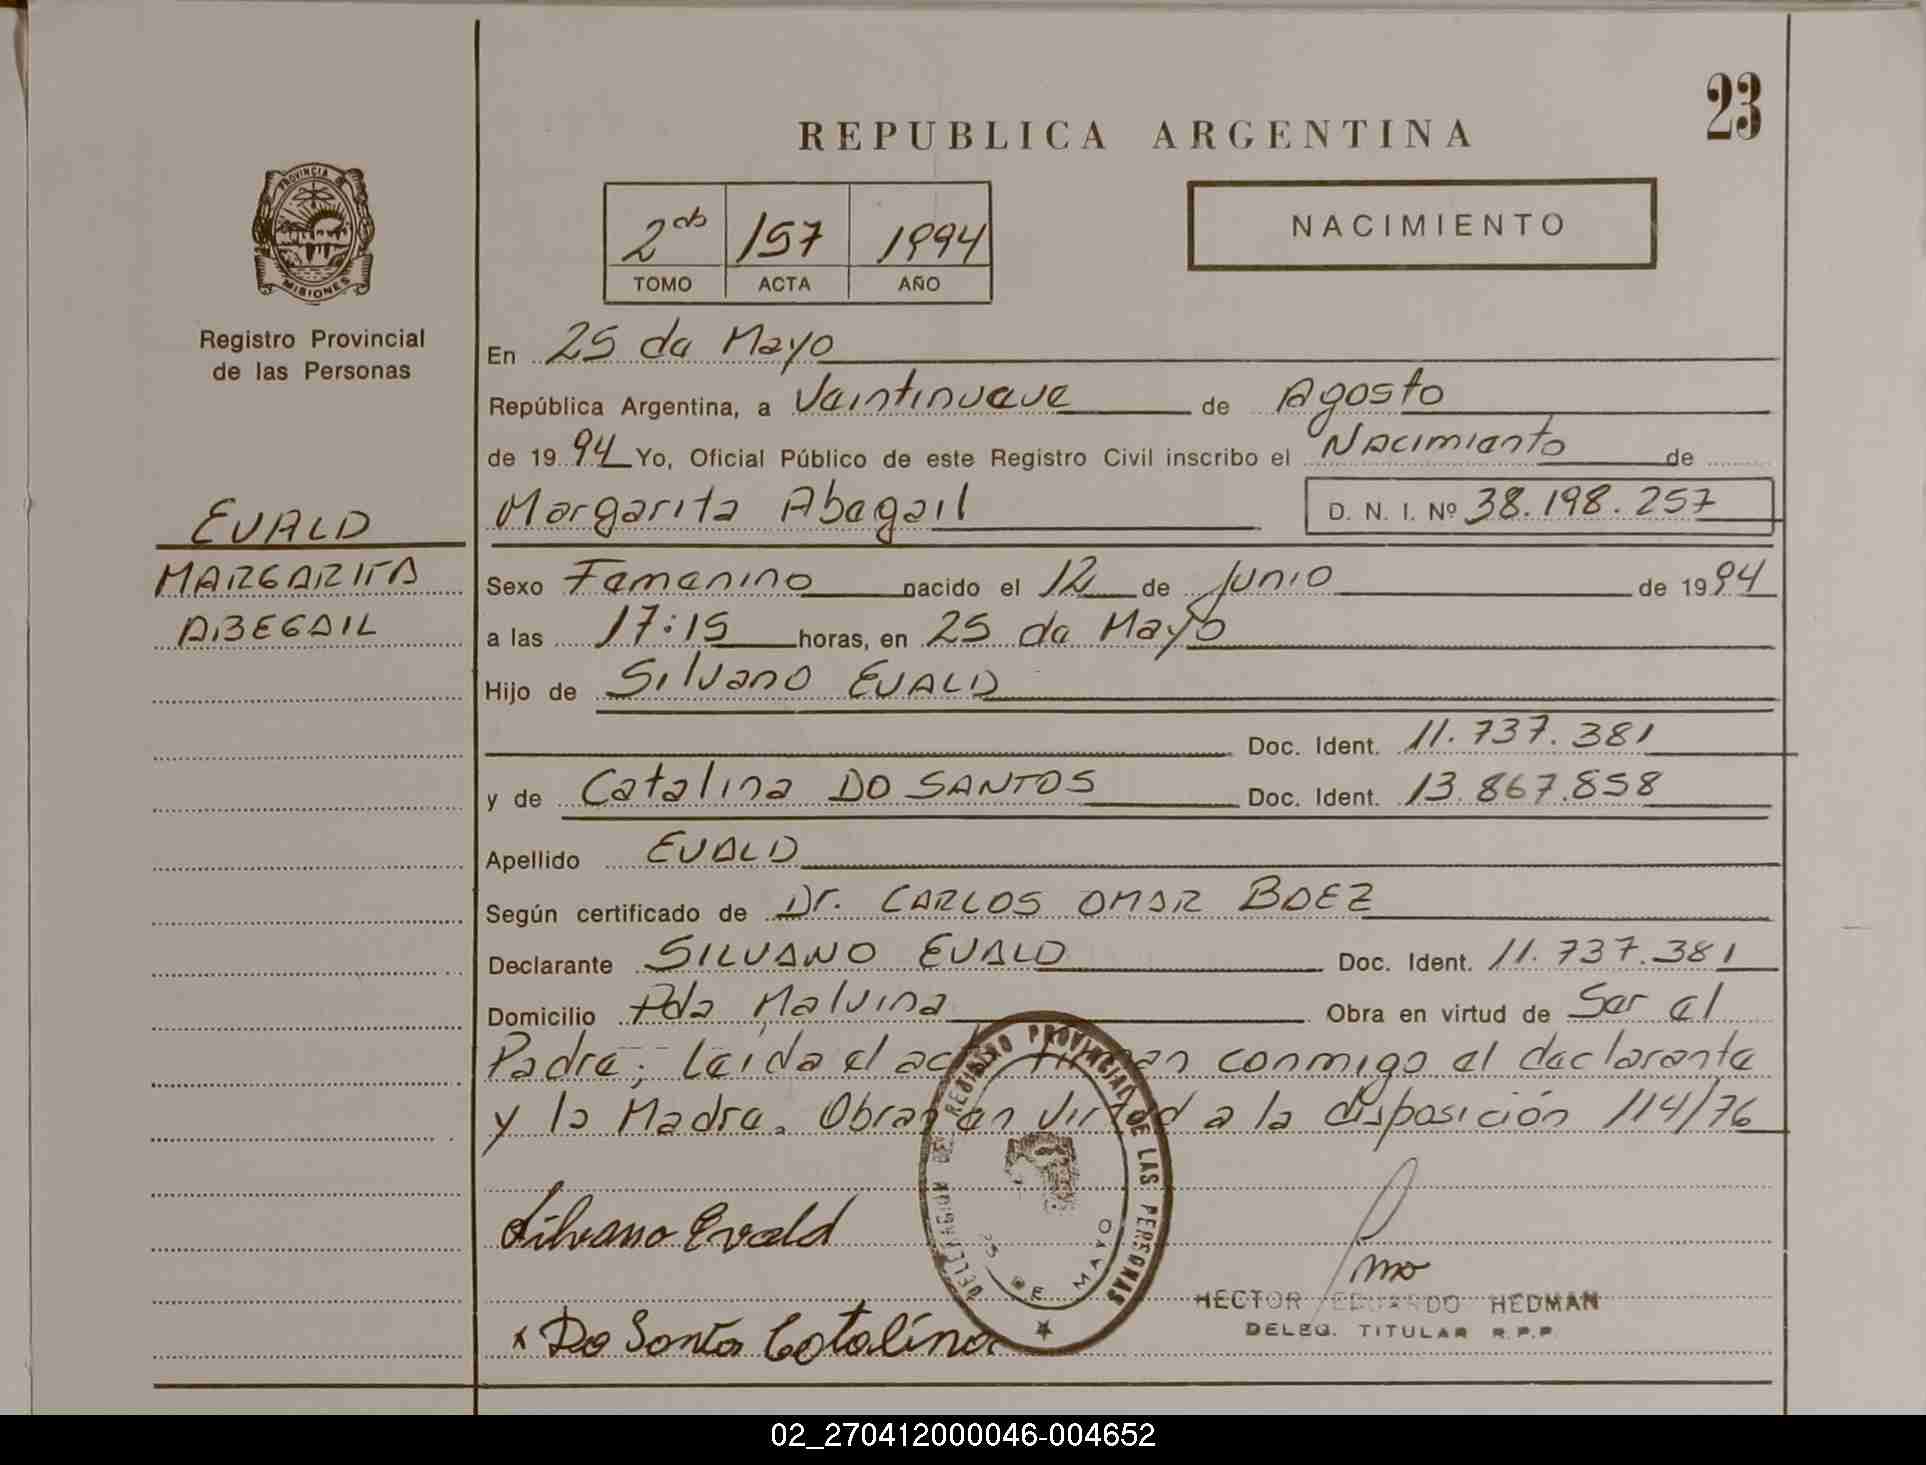 23
REPUBLICA ARGENTINA
PROVINCIA DE
MISIONES
Registro Provincial
de las Personas
2do 157 1994
TOMO ACTA AÑO
NACIMIENTO
En 25 de Mayo
República Argentina, a Veintinueve de Agosto
de 1994 Yo, Oficial Público de este Registro Civil inscribo el Nacimiento de
Margarita Abegail D. N. I. Nº 38.198.257
EVALD
MARGARITA
ABEGAIL
Sexo Femenino nacido el 12 de Junio de 1994
a las 17:15 horas, en 25 de Mayo
Hijo de Silvano EVALD
Doc. Ident. 11.737.381
y de Catalina DO SANTOS Doc. Ident. 13.867.858
Apellido EVALD
Según certificado de Dr. CARLOS OMAR BAEZ
Declarante SILVANO EVALD Doc. Ident. 11.737.381
Domicilio Pda Malvina Obra en virtud de Ser el
Padre; Leída el acta firman conmigo el declarante
y la Madre. Obran en virtud a la disposición 114/76
DELEGACION DE REGISTRO PROVINCIAL DE LAS PERSONAS
25 DE MAYO
Silvano Evald
HECTOR EDUARDO HEDMAN
DELEG. TITULAR R.P.P.
x Do Santo Catalina
02_270412000046-004652